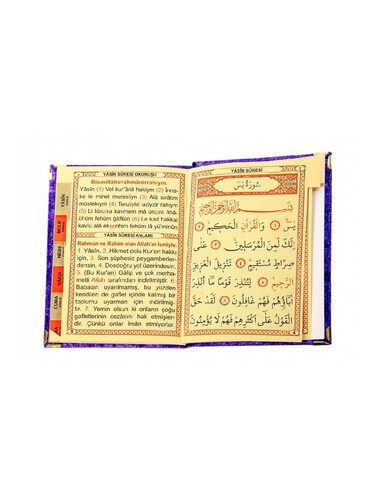 YÂSİN SÛRESİ OKUNUŞU
Bismillâhirrahmânirrahıym.
Yâsîn (1) Vel kur'ânil hakiym (2) İnne-
ke le minel murseliyn (3) Alâ sırâtım
müstekıym (4) Tenziylel azizir rahiym
(5) Li tünzira kavmem mâ ünzira âbâ-
ühüm fehüm ğafilun (6) Le kad hakkal
kavlü alâ ekserihim fehüm lâ yü'minun
YÂSİN SÛRESİ ANLAMI
Rahman ve Rahim olan Allah'ın İsmiyle.
1. Yâsîn. 2. Hikmet dolu Kur'an hakkı
için, 3. Sen şüphesiz peygamberler-
densin. 4. Dosdoğru yol üzerindesin.
5. (Bu Kur'an) Gâlip ve çok merha-
metli Allah tarafından indirilmiştir. 6.
Babaları uyarılmamış, bu yüzden
kendileri de gaflet içinde kalmış bir
toplumu uyarman için indirilmiş-
tir. 7. Yemin olsun ki onların çoğu
gafletlerinin cezasını hak etmişler-
dir. Çünkü onlar îman etmiyorlar.
YÂSİN
MÜLK
NEBE
CUMA
YÂSİN SÛRESİ
سُورَةُ يٰسٓ
بِسْمِ اللّٰهِ الرَّحْمٰنِ الرَّحِيمِ
يٰسٓ ﴿١﴾ وَالْقُرْاٰنِ الْحَكِيمِ ﴿٢﴾
اِنَّكَ لَمِنَ الْمُرْسَلِينَ ﴿٣﴾ عَلٰى
صِرَاطٍ مُسْتَقِيمٍ ﴿٤﴾ تَنْزِيلَ الْعَزِيزِ
الرَّحِيمِ ﴿٥﴾ لِتُنْذِرَ قَوْمًا مَٓا اُنْذِرَ
اٰبَٓاؤُهُمْ فَهُمْ غَافِلُونَ ﴿٦﴾ لَقَدْ حَقَّ
الْقَوْلُ عَلٰٓى اَكْثَرِهِمْ فَهُمْ لَا يُؤْمِنُونَ